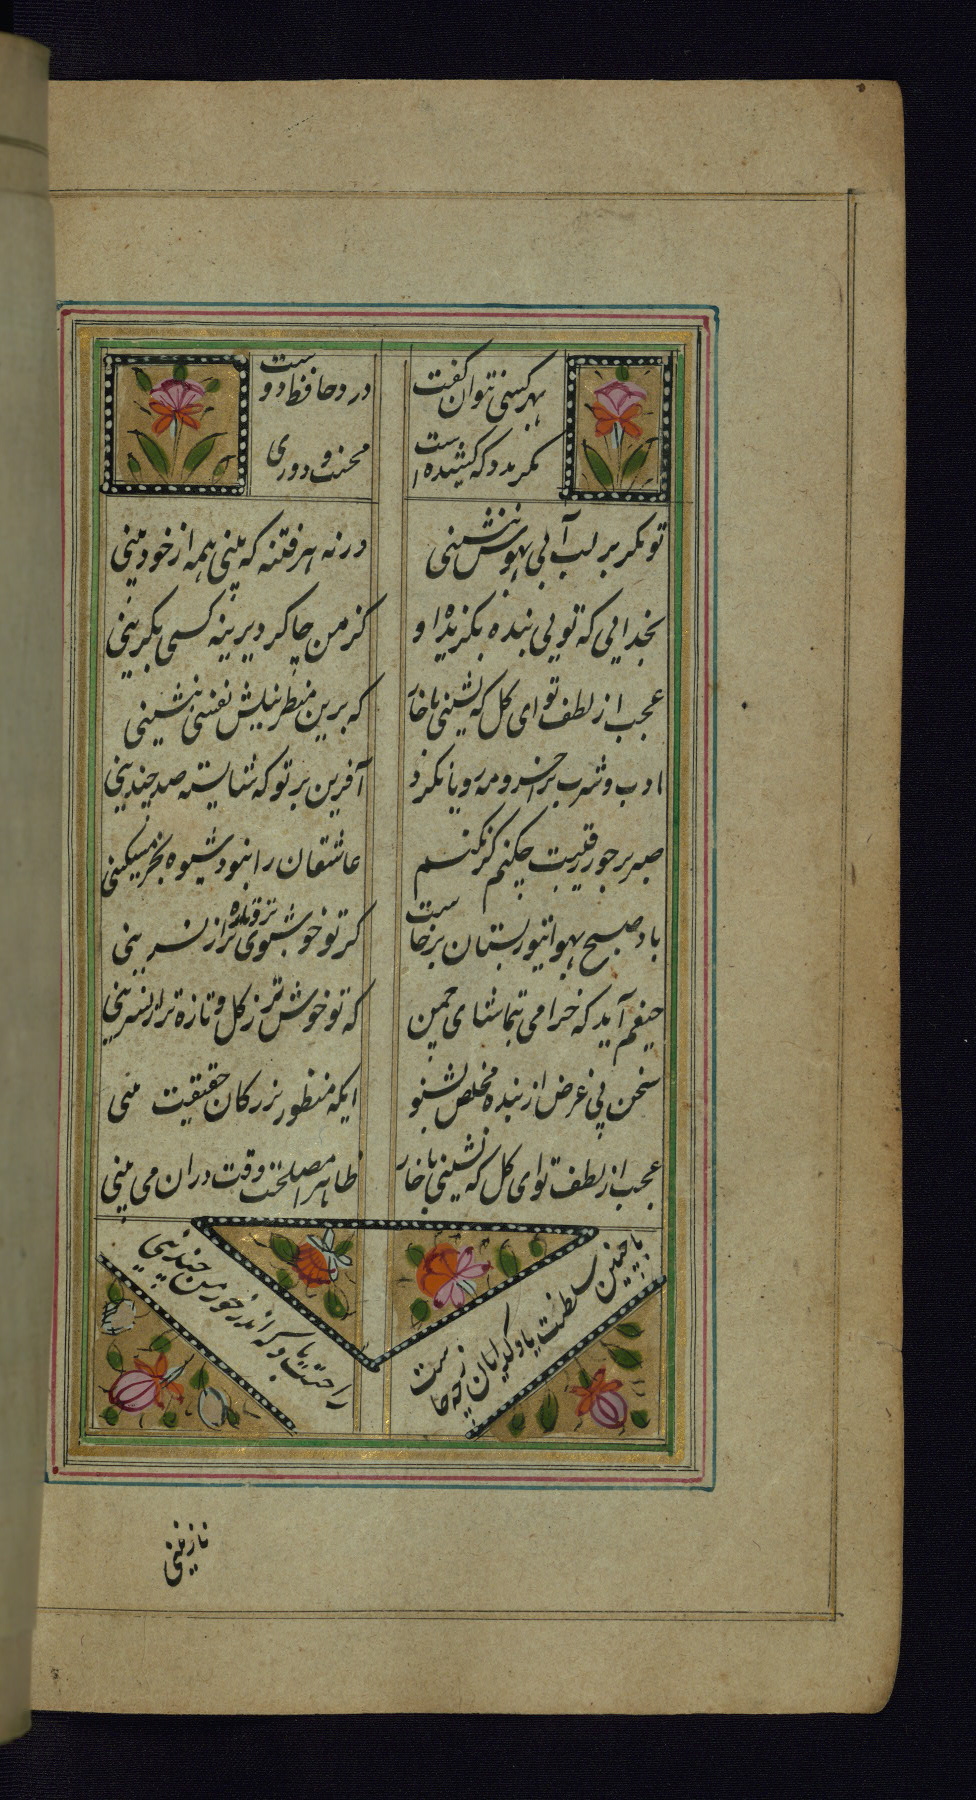 بهر کسی نتوان گفت درد حافظ دوست
مگر بدو که کشیده است محنت و دوری
تو مگر بر لب آبی بهوس ننشینی ورنه هر فتنه که بینی همه از خود بینی
بخدایی که تویی بنده بگزیده او کز من چاکر دیرینه کسی نگزینی
عجب از لطف تو ای گل که نشینی با خار که برین منظر بینش نفسی بنشینی
ادب و شرم ترا خسرو مه رویان کرد آفرین بر تو که شایسته صد چندینی
صبر بر جور رقیبت چکنم گر نکنم عاشقان را نبود شیوه بجز مسکینی
باد صبح بهواتیو ز بستان برخاست که تو خوشبوی تر و تازه تر از نسرینی
حیفم آید که خرامی بتماشای چمن که تو خوش تر ز گل و تازه تر از نسرینی
سخن بی غرض از بنده مخلص بشنو ایکه منظور بزرگان حقیقت بینی
عجب از لطف تو ای گل که نشینی با خار ظاهرا مصلحت وقت دران می بینی
با چنین سلطنت یاد گدایان ز چه خاست
راحت باسوکه اندر خور من چندینی
نازنینی